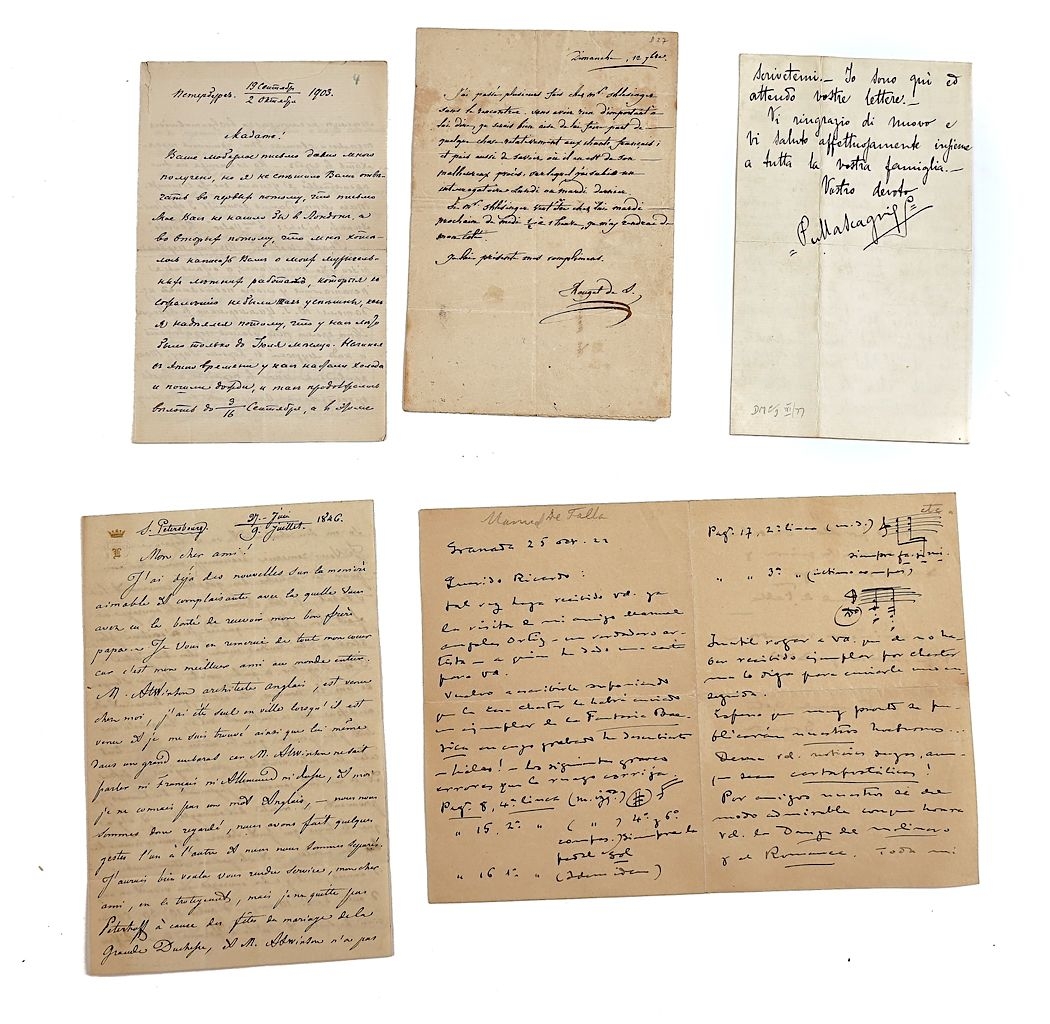 4
Петербургъ. 19 Сентября / 2 Октября 1903.
Madame!
Ваше любезное письмо давно мною
получено, но я не спѣшилъ Вамъ отвѣ-
чать во первыхъ потому, что письмо
мое Васъ не нашло бы в Лондонѣ, а
во вторыхъ потому, что мнѣ хотѣ-
лось написать Вамъ о моихъ музыкаль-
ныхъ лѣтнихъ работахъ, которыя къ
сожалѣнію не были такъ успѣшны, какъ
я надѣялся потому, что у насъ лѣто
было только до Іюля мѣсяца. Начиная
съ этого времени у насъ настали холода
и пошли дожди, и такъ продолжалось
вплоть до 3/16 Сентября, а в
227
Dimanche, 12 9bre.
J'ai passé plusieurs fois chez Mr. Schlesinger
sans le rencontrer. sans avoir rien d'important à
lui dire, je serais bien aise de lui faire part de
quelque chose relativement aux chants français;
et puis aussi de savoir où il en est de son
malheureux procès, sur lequel j'ai subi un
interrogatoire Lundi ou mardi dernier.
Si Mr. Schlesinger veut être chez lui mardi
prochain de midi à 1 heure, je m'y rendrai de
mon côté.
Je lui présente mes complimens.
Rouget de L.
scrivetemi.— Io sono qui ed
attendo vostre lettere.—
Vi ringrazio di nuovo e
vi saluto affettuosamente insieme
a tutta la vostra famiglia.—
Vostro devoto
P. Mascagni
S. Petersbourg. 27 Juin / 9 Juillet. 1846.
Mon cher ami!
J'ai déja des nouvelles sur la manière
aimable et complaisante avec laquelle Vous
avez eu la bonté de recevoir mon bon frère
papa.— Je Vous en remercie de tout mon cœur
car c'est mon meilleur ami au monde entier.
M. Atwinson architecte anglais, est venu
chez moi, j'ai été seul en ville lorsqu'il est
venu et je me suis trouvé ainsi que lui même
dans un grand embaras car M. Atwinson ne sait
parler ni Français ni Allemand ni Russe, et moi
je ne connais pas un mot Anglais,— nous nous
sommes donc regardé, nous avons fait quelques
gestes l'un à l'autre et nous nous sommes separés.
J'aurais bien voulu vous rendre service, mon cher
ami, en le protegeant, mais je ne quitte pas
Peterhoff à cause des fêtes du mariage de la
Grande Duchesse, et M. Atwinson n'a pas
Manuel de Falla
Granada 25 oct. 22
Querido Ricardo:
tal vez haya recibido vd. ya
la visita de mi amigo Manuel
Angeles Ortiz — un verdadero ar-
tista — a quien he dado una carta
para vd.
Vuelvo a escribirle suponiendo
que la casa Chester le habrá enviado
un ejemplar de la Fantasía Bae-
tica en cuyo grabado he descubierto
— helas! — los siguientes graves
errores que le ruego corrija.
Pag. 8, 4ª linea (m. izq.)
" 15, 2ª " ( " ) 4º y 6º
compas. Siempre la
Sol
" 16 1ª " (Idem idem)
etc.
Pag. 17, 2ª linea (m. d.)
siempre fa
" " 3ª " (último compás)
Inutil rogar a vd. que de no ha-
ber recibido ejemplar por Chester
me lo diga para enviarle uno en
seguida.
Espero que muy pronto se pu-
blicarán nuestros nocturnos...
Deme vd. noticias suyas, aun-
que sean cortafrásticas!
Por amigos nuestros sé de
modo admirable conque honra
vd. la Danza del molinero
y el Romance. Toda mi